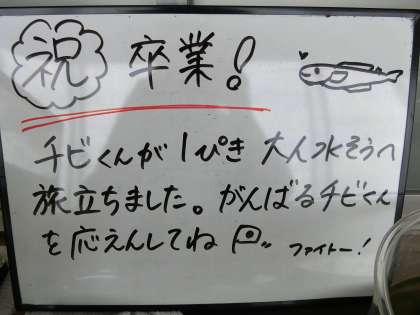 祝 卒業!
チビくんが1ぴき 大人水そうへ
旅立ちました。がんばるチビくん
を応えんしてね ファイトー!